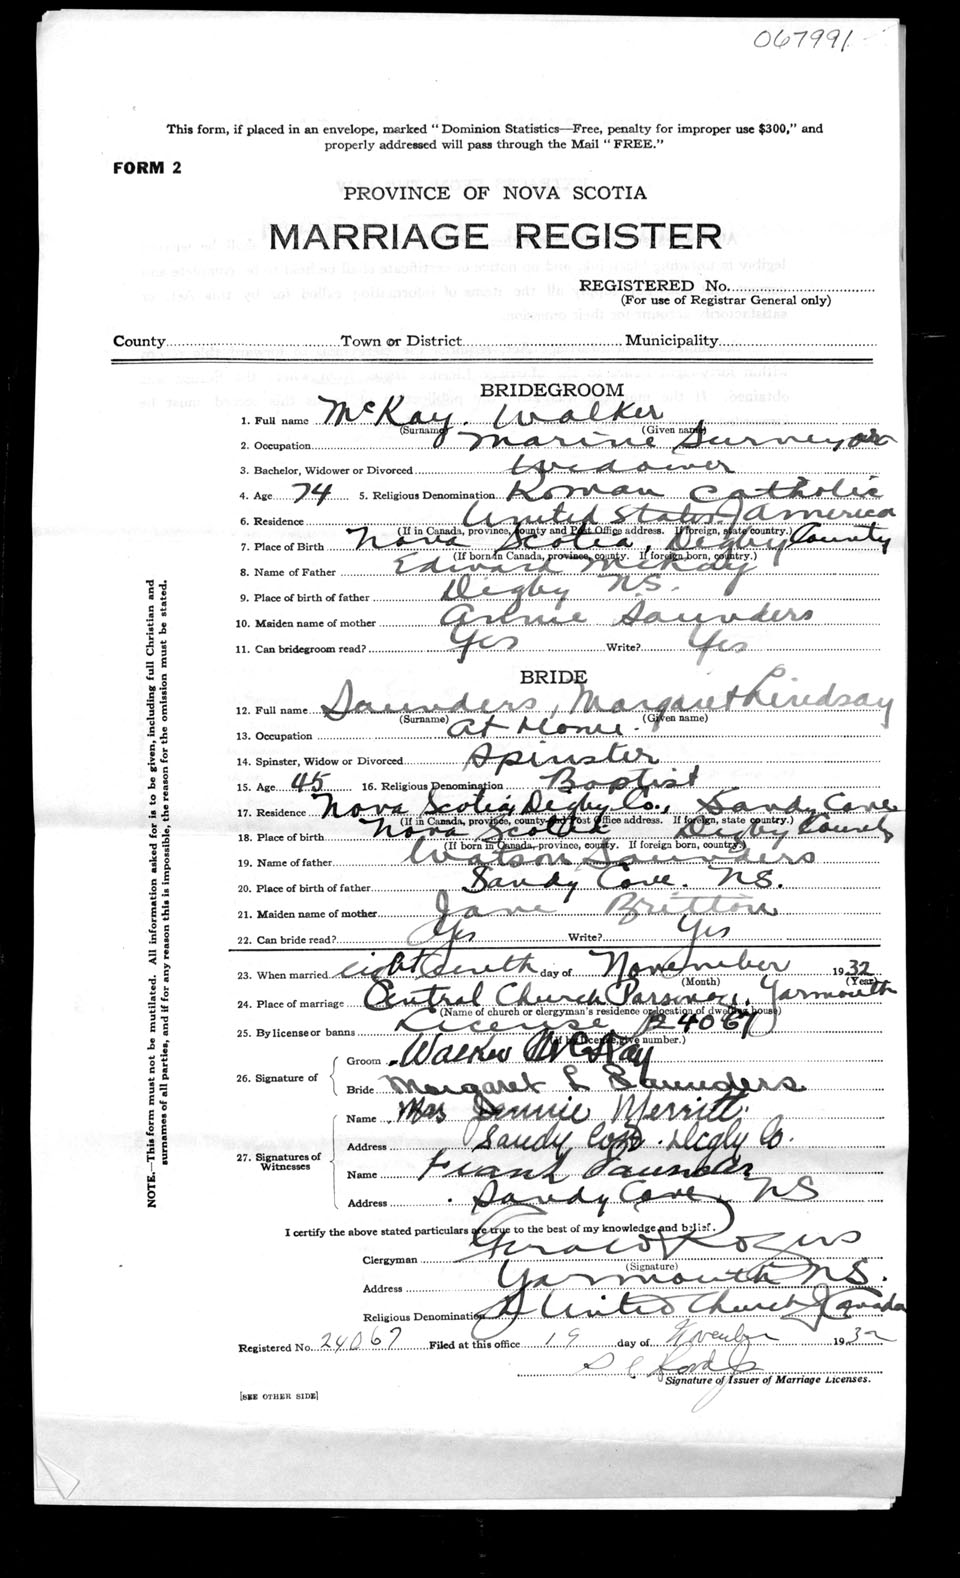 067991
This form, if placed in an envelope, marked "Dominion Statistics—Free, penalty for improper use $300," and
properly addressed will pass through the Mail "FREE."
FORM 2
PROVINCE OF NOVA SCOTIA
MARRIAGE REGISTER
REGISTERED No.
(For use of Registrar General only)
County Town or District Municipality
BRIDEGROOM
1. Full name McKay. Walker
(Surname) (Given name)
2. Occupation Marine Surveyor
3. Bachelor, Widower or Divorced Widower
4. Age 74 5. Religious Denomination Roman Catholic
6. Residence United States, America
(If in Canada, province, county and Post Office address. If foreign, state country.)
7. Place of Birth Nova Scotia, Digby County
(If born in Canada, province, county. If foreign born, country.)
8. Name of Father Edward McKay
9. Place of birth of father Digby N.S.
10. Maiden name of mother Annie Saunders
11. Can bridegroom read? Yes Write? Yes
BRIDE
12. Full name Saunders, Margaret Lindsay
(Surname) (Given name)
13. Occupation At Home.
14. Spinster, Widow or Divorced Spinster
15. Age 45 16. Religious Denomination Baptist
17. Residence Nova Scotia, Digby Co., Sandy Cove
(If in Canada, province, county and Post Office address. If foreign, state country.)
18. Place of birth Nova Scotia Digby County
(If born in Canada, province, county. If foreign born, country.)
19. Name of father Watson Saunders
20. Place of birth of father Sandy Cove. N.S.
21. Maiden name of mother Jane Britton
22. Can bride read? Yes Write? Yes
23. When married eighteenth day of November 1932
(Month) (Year)
24. Place of marriage Central Church Parsonage, Yarmouth
(Name of church or clergyman's residence or location of dwelling house)
25. By license or banns License 24067
(If by license, give number.)
26. Signature of
Groom Walker McKay
Bride Margaret L Saunders
27. Signatures of Witnesses
Name Mrs Jennie Merritt.
Address Sandy Cove. Digby Co.
Name Frank Saunders
Address Sandy Cove, NS
I certify the above stated particulars are true to the best of my knowledge and belief.
Clergyman Gerald Rogers
(Signature)
Address Yarmouth N.S.
Religious Denomination United Church Canada
Registered No. 24067 Filed at this office 19 day of November 1932
Signature of Issuer of Marriage Licenses.
[SEE OTHER SIDE]
NOTE.—This form must not be mutilated. All information asked for is to be given, including full Christian and
surnames of all parties, and if for any reason this is impossible, the reason for the omission must be stated.